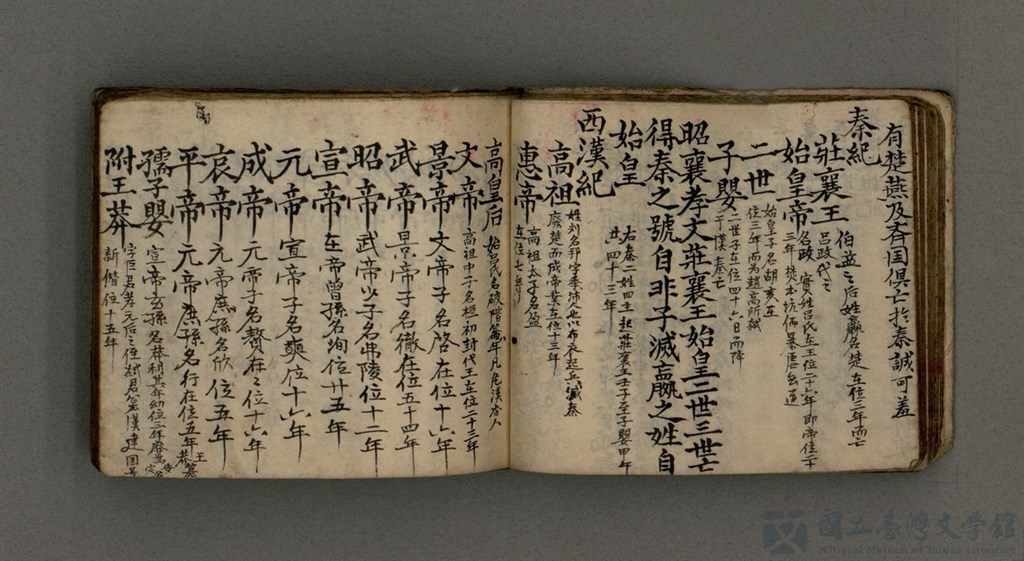 有楚燕及斉国俱亡於秦誠可羞
秦紀
莊襄王 伯益之后姓嬴名楚在位三年而亡
呂政代之
始皇帝 名政實姓呂氏在王位二十六年即帝位二十
三年焚本坑儒暴虐
二世 始皇子名胡亥在
位三年而為趙高所弒
子嬰 二世子在位四十六日而降
于漢秦亡
昭襄孝文莊襄王始皇二世三世亡
得秦之號自非子滅嬴之姓自
始皇 右秦二姓四主起莊襄王壬子至子嬰甲午
廿四十三年
西漢紀
高祖 姓刘名邦字季沛也以布衣起兵滅秦
廢楚而成帝業在位十三年
惠帝 高祖太子名盈
在位七年
高皇后 始呂氏名雉
文帝 高祖中子名恒初封代王在位二十三年
景帝 文帝子名啓在位十六年
武帝 景帝子名徹在位五十四年
昭帝 武帝少子名弗陵位十二年
宣帝 在帝曾孫名詢位廿五年
元帝 宣帝子名奭位十六年
成帝 元帝子名驁在位十六年
哀帝 元帝庶孫名欣位五年
平帝 元帝庶孫名衎在位五年
孺子嬰 宣帝玄孫名莽利其年幼位三年廢為
附王莽 字巨君孝元后之侄弒君篡漢建国号
新僭位十五年
國立臺灣文學館
National Museum of Taiwan Literature